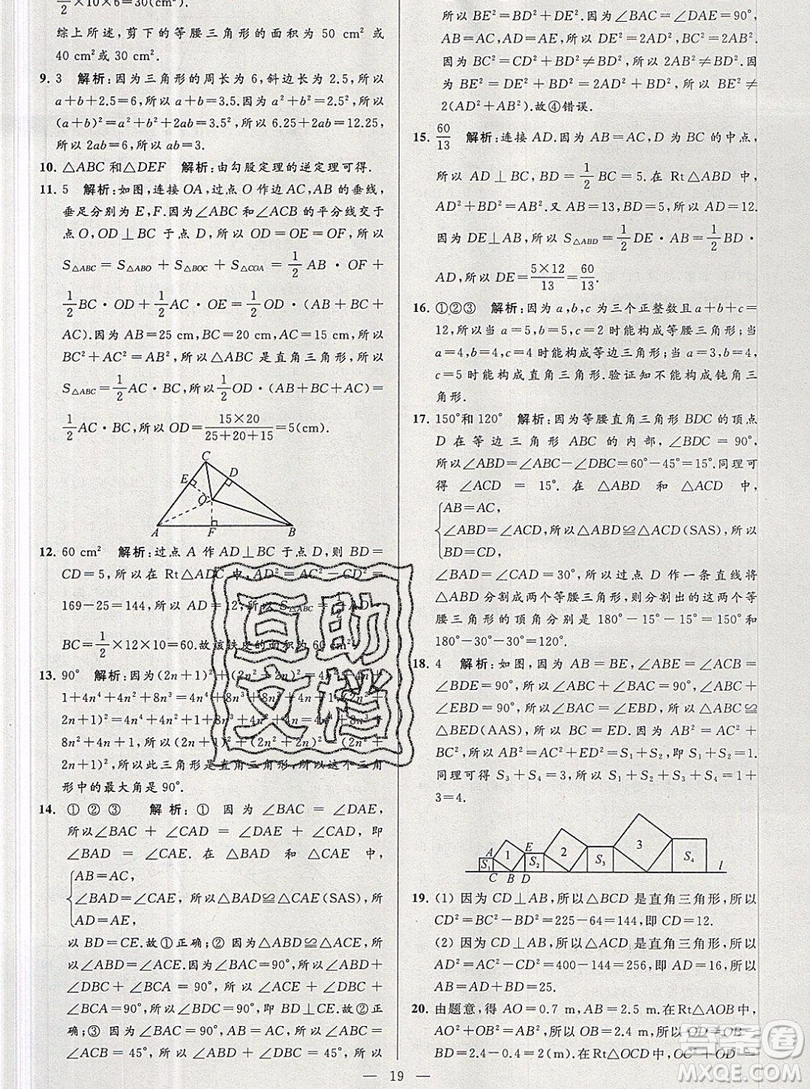 1/2×10×6=30(cm²).
综上所述,剪下的等腰三角形的面积为 50 cm² 或
40 cm² 或 30 cm².
9. 3 解析:因为三角形的周长为 6,斜边长为 2.5,所以
a+b+2.5=6,所以 a+b=3.5.因为 a²+b²=2.5²,所以
(a+b)²=a²+b²+2ab=3.5²,所以 6.25+2ab=12.25,
所以 2ab=6,所以 ab=3.
10. △ABC 和△DEF 解析:由勾股定理的逆定理可得.
11. 5 解析:如图,连接 OA,过点 O 作边 AB、AC 的垂线,
垂足分别为 E,F.因为∠ABC 和∠ACB 的平分线交于
点 O,OD⊥BC 于点 D,所以 OD=OE=OF,所以
S△ABC=S△ABO+S△BOC+S△COA=1/2 AB·OF+
1/2 BC·OD+1/2 AC·OE=1/2 OD·(AB+BC+
AC).因为 AB=25 cm,BC=20 cm,AC=15 cm,所以
AC²+BC²=AB²,所以△ABC 是直角三角形,所以
S△ABC=1/2 AC·BC,所以 1/2 OD·(AB+BC+AC)=
1/2 AC·BC,所以 OD=(15×20)/(25+20+15)=5(cm).
C
E
D
O
A
F
B
12. 60 cm² 解析:过点 A 作 AD⊥BC 于点 D,则 BD=
CD=5,所以在 Rt△ADC 中,AD²=AC²-CD²=
169-25=144,所以 AD=12,所以 S△ABC=
BC=1/2×12×10=60.故该铁皮的面积为 60 cm².
13. 90° 解析:因为(2n+1)²+(2n²+2n)²=4n²+4n+
1+4n⁴+4n²+8n³=4n⁴+8n³+8n²+4n+1,(2n²+
2n+1)²=(2n²+2n)²+
8n²+4n+1,所以(2n+1)²+(2n²+2n)²=(2n²+
2n+1)²,所以此三角形是直角三角形,所以这个三角
形中的最大角是 90°.
14. ① ② ③ 解析:① 因为∠BAC=∠DAE,
所以∠BAC+∠CAD=∠DAE+∠CAD,即
∠BAD=∠CAE.在△ABD 和△ACE 中,
AB=AC,
∠BAD=∠CAE,所以△ABD≌△ACE(SAS),所
AD=AE,
以 BD=CE.故①正确;②因为△ABD≌△ACE,所
以∠ABD=∠ACE.因为∠ABD+∠DBC=
45°,所以∠ACE+∠DBC=45°,所以∠ACE+
∠DBC=45°.故②正确;③因为∠ABC+
∠ACB=45°,所以∠DBC+∠ACE+∠ACB=
所以 BE²=BD²+DE².因为∠BAC=∠DAE=90°,
AB=AC,AD=AE,所以 DE²=2AD²,BC²=2AB².
因为 BC²=BD²+CD²≠BD²,所以 2AB²≠BD²,所以 BE²≠
2(AD²+AB²).故④错误.
15. 60/13 解析:连接 AD.因为 AB=AC,D 为 BC 的中点,
所以 AD⊥BC,BD=1/2 BC=5.在 Rt△ABD 中,
AD²+BD²=AB²,所以 AD²=13²-5²=12²,所以 AD=12.
因为 DE⊥AB,所以 S△ABD=1/2 DE·AB=1/2 BD·
AD,所以 DE=(5×12)/13=60/13.
16. ①②③ 解析:因为 a,b,c 为三个正整数且 a+b+c=
12,所以当 a=5,b=5,c=2 时能构成等腰三角形;当
a=4,b=4,c=4 时能构成等边三角形;当 a=3,b=
4,c=5 时能构成直角三角形.验证知不能构成钝角三
角形.
17. 150°和120° 解析:因为等腰直角三角形 BDC 的顶点
D 在等边三角形 ABC 的内部,∠BDC=90°,所以
∠ABD=∠ABC-∠DBC=60°-45°=15°.同理可
得∠ACD=15°.在△ABD 和△ACD 中,
AB=AC,
∠ABD=∠ACD,所以△ABD≌△ACD(SAS),所以
BD=CD,
∠BAD=∠CAD=30°,所以过点 D 作一条直线将
△ABD 分割成两个等腰三角形,所以分割出的两个等
腰三角形的顶角分别是 180°-15°-15°=150°和
180°-30°-30°=120°.
18. 4 解析:如图,因为 AB=BE,∠ABE=∠ACB=
∠BDE=90°,所以∠ABC+∠BAC=90°,∠ABC+
∠EBD=90°,所以∠BAC=∠EBD,所以△ABC≌
△BED(AAS),所以 BC=ED.因为 AB²=AC²+
BC²,所以 AB²=AC²+ED²=S₁+S₂,即 S₁+S₂=1.
同理可得 S₂+S₃=2,S₃+S₄=3,所以 S₁+2S₂+2S₃+S₄=1+
3=4.
A E
S₁ 1 S₂ 2 S₃ 3 S₄ l
C B D
19. (1) 因为 CD⊥AB,所以△BCD 是直角三角形,所以
CD²=BC²-BD²=225-64=144,所以 CD=12.
(2) 因为 CD⊥AB,所以△ACD 是直角三角形,所以
AD²=AC²-CD²=400-144=256,所以 AD=16,所以
AB=AD+BD=25.
20. 由题意,得 AO=0.7 m,AB=2.5 m,在 Rt△AOB 中,
AO²+OB²=AB²,所以 OB=2.4 m.所以 OD=OB-
BD=2.4-0.4=2(m).在 Rt△OCD 中,所以 OC²+
互助
文档
答案圈
MXQE.COM
— 19 —